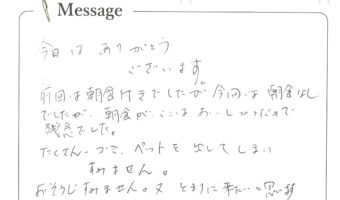 Message
今日は ありがとう
ございます。
前回は朝食付きでしたが 今回は 朝食なし
でしたが、朝食が、ここは おいしかったので
残念でした。
たくさん、ゴミ、ペットを 出してしまい
すみません。
おそうじ すみません。又 とまりに 来たいと思います